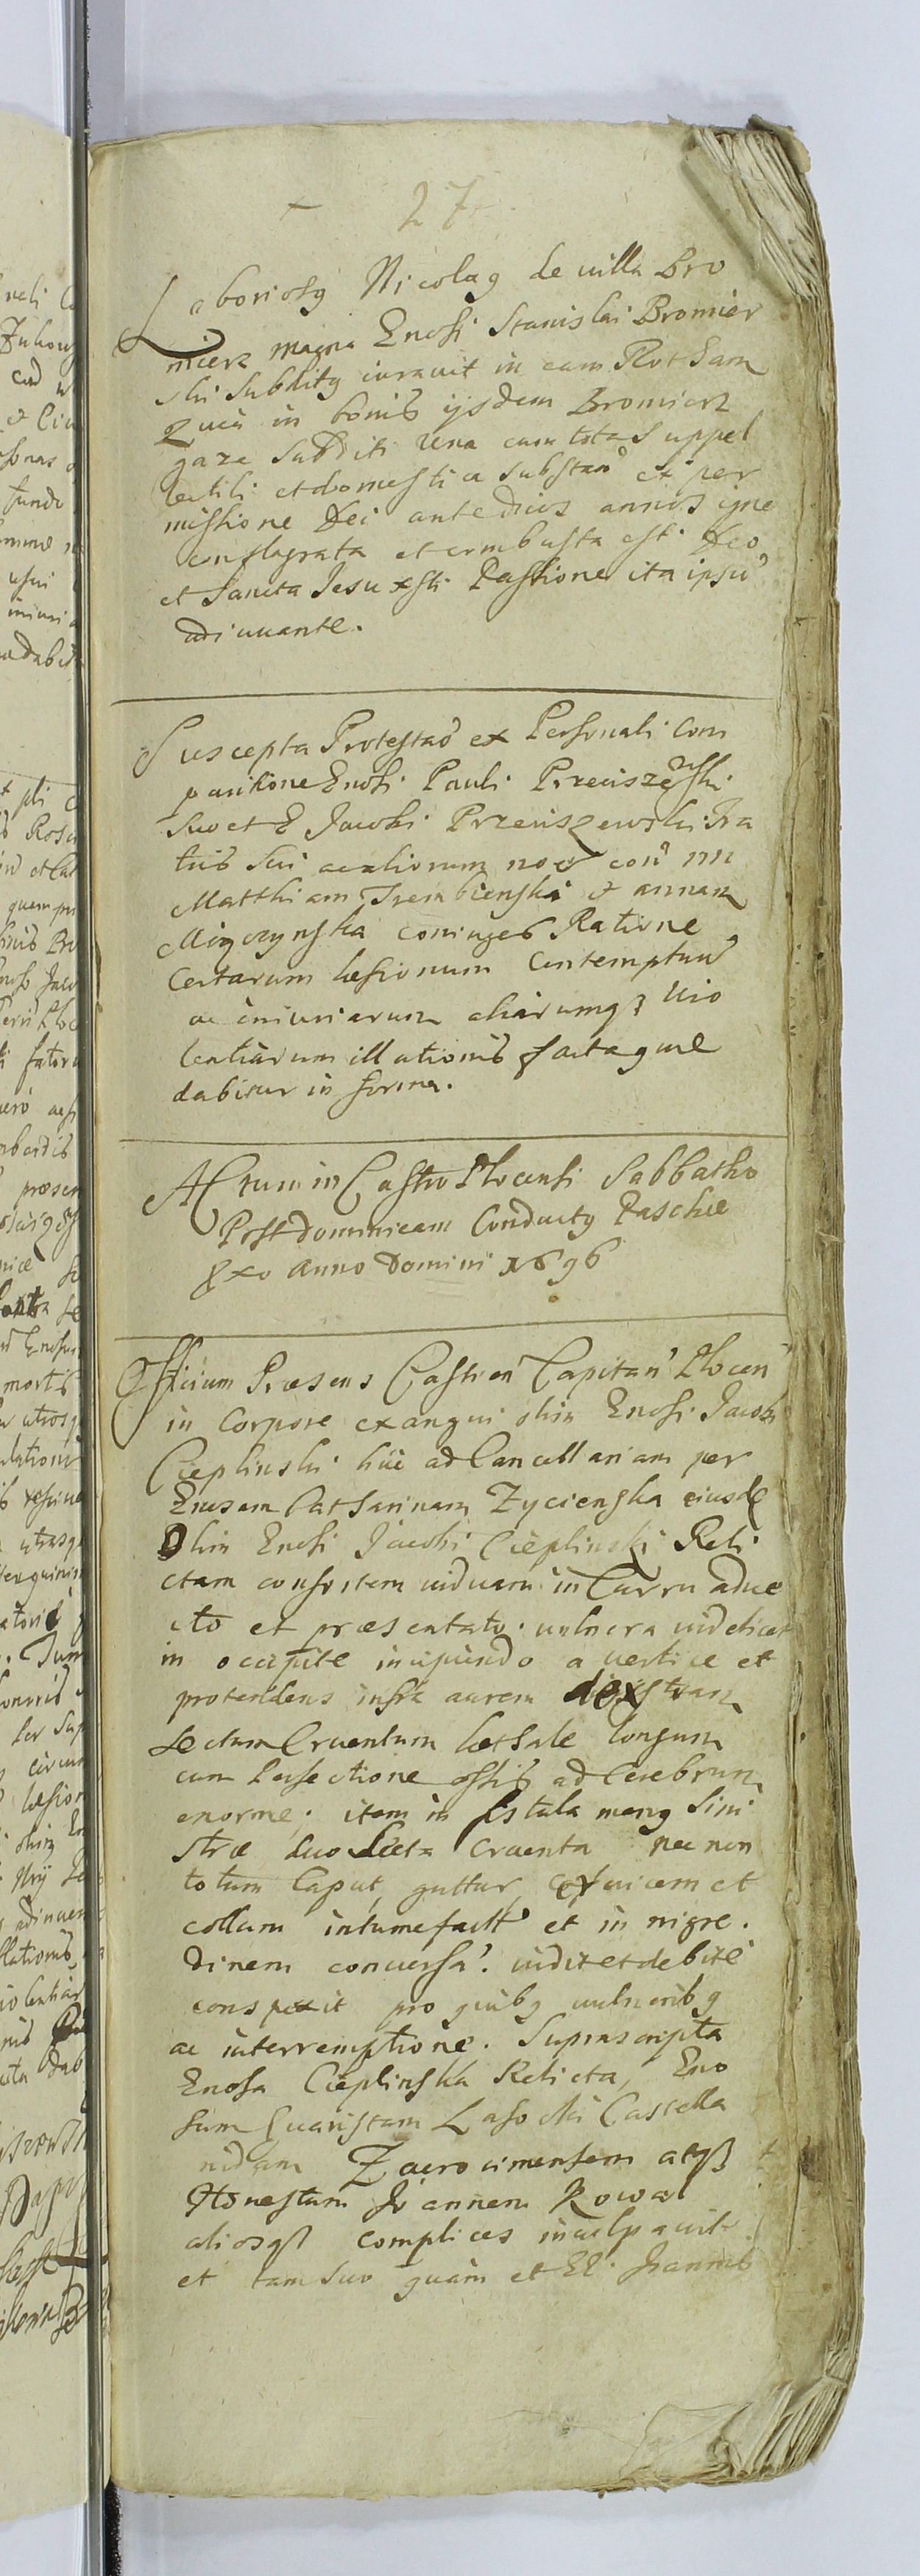 27
Laboriosg Nicolag de villa Bro
mierz magna Enosi Stanislai Bromier
ski Subditg iuravit in eam Rotham
Quia in bonis ijsdem Bromierz
gaza Subditi una cum tota Suppel
lectili et domestica substan et per
missione Dei ante duos annos igne
conflagrata et combusta est. Deo
et Sancta Jesu Xsti Passione ita ipsu
adiuuante.
Suscepta Protestao ex Personali Com
paritione Enosi Pauli Przeciszewski
Suo et E Jacobi Przeciszewski Fra
tris Sui noe con nn
Matthiam Trembienski et annam
Miączynska coniuges Ratione
Certarum lesionum Contemptuu
ac iniuriarum aliarumq3 Uio
lentiarum illationis facta que
dabitur in forma.
Actum in Castro Plocensi Sabbatho
Post dominicam Conductg Paschae
pxo Anno Domini 1696
Officium Praesens Castren Capitan Plocen
in Corpore exangui olim Enosi Jacobi
Cieplinski huc ad Cancellariam per
Enosam Catharinam Zycienska eiusde
Olim Enosi Jacobi Cieplinski Reli
ctam consortem uiduam in Curru adue
cto et praesentato. uulnera uidelicet
in occipite incipiendo a uertice et
protendens infra aurem dextram
sectum Cruentum laethale longum
cum persectione ossis ad Cerebrum
enorme; item in fistula mang Sini
strae duo secta Cruenta nec non
totum Caput, guttur, ceruicem et
collum intumefactu et in nigre.
dinem conuersa. uidit et debite
conspexit pro quibg uulneribg
ac interremptione. Suprascripta
Enosa Cieplinska Relicta, Eno
sum Euaristam Lasocki Castella
nidam Zacrocimensem atqs
Honestum Joannem Kowal
aliosqs complices inculpauit
et tam Suo quam et EE. Joannis